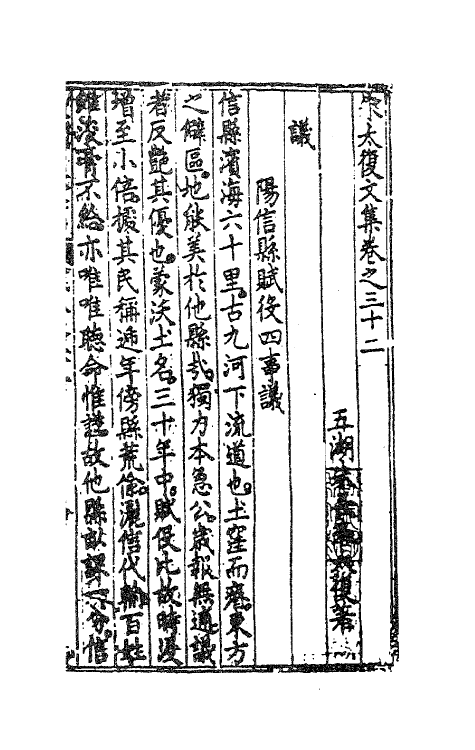 宋太復文集卷之三十二
五湖 復著
議
陽信縣賦役四事議
信縣濱海六十里古九河下流道也土窪而瘠東方
之僻區地能美於他縣哉獨力本急公歲報無逋議
者反艷其優也蒙沃土名三十年中賦役比故時浸
增至小倍援其民稱逓年傍縣荒偷灑信代輸百姓
雖浚膏不給亦唯唯聽命惟謹故他縣畝課一分信